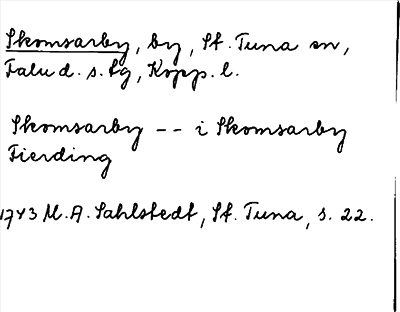 Skomsarby, by, St. Tuna sn,
Falu d. s. lg, Kopp. l.
Skomsarby -- i Skomsarby
Fierding
1743 M. A. Sahlstedt, St. Tuna, s. 22.